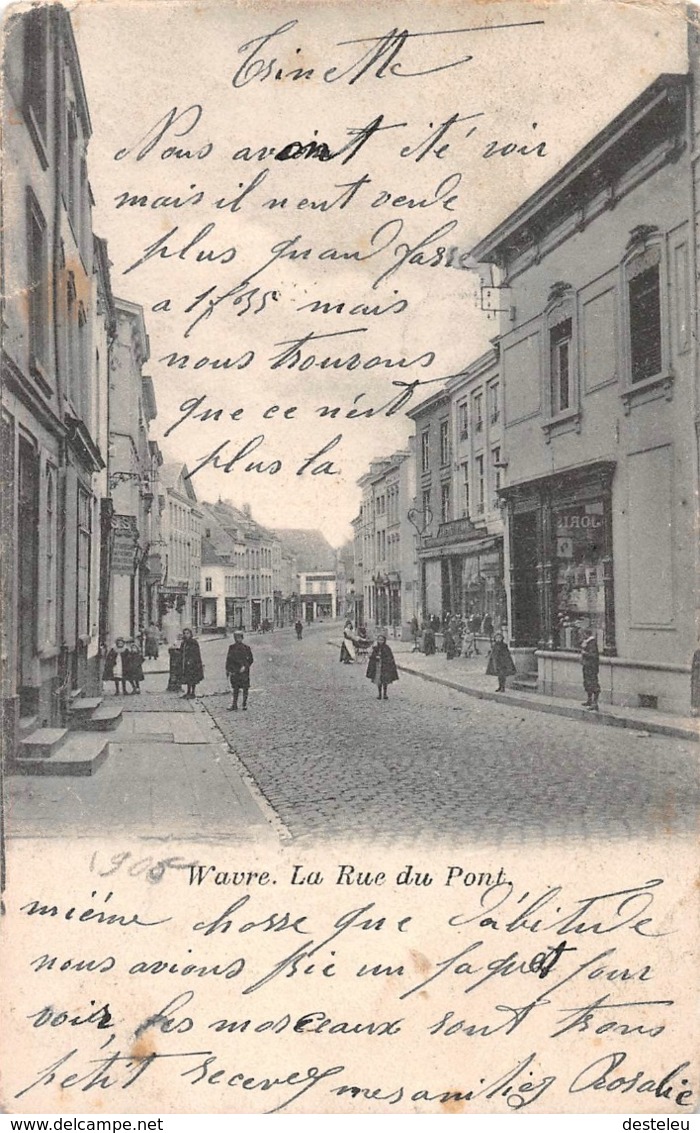 Trinette
Nous avoint été voir
mais il nent vende
plus quau Fasse
a 1f35 mais
nous trouvons
que ce n'est
plus la
JORIS
1905
Wavre. La Rue du Pont.
miéme chosse que D'abitude
nous avions prie un paquet pour
voir les morceaux sont trons
petit recevez mes amitiez Rosalie
www.delcampe.net
desteleu